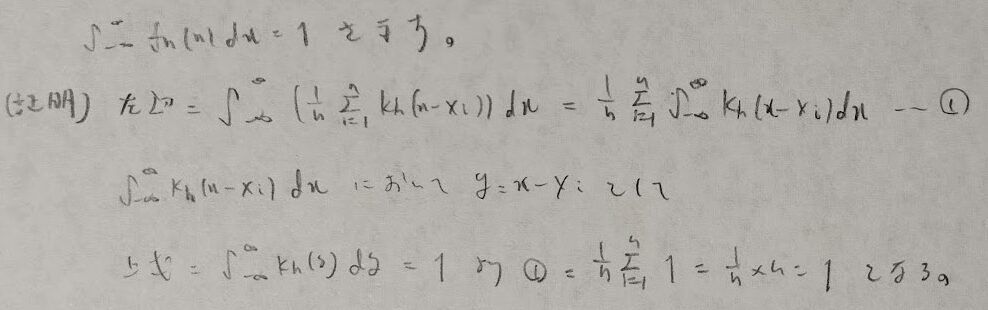 ∫_{-∞}^{∞} fn(x) dx = 1 を示す。
(証明) 左辺 = ∫_{-∞}^{∞} (1/n Σ_{i=1}^{n} Kh(x-Xi)) dx = 1/n Σ_{i=1}^{n} ∫_{-∞}^{∞} Kh(x-Xi) dx --- ①
∫_{-∞}^{∞} Kh(x-Xi) dx において y=x-Xi として
上式 = ∫_{-∞}^{∞} Kh(y) dy = 1 より ① = 1/n Σ_{i=1}^{n} 1 = 1/n × n = 1 となる。